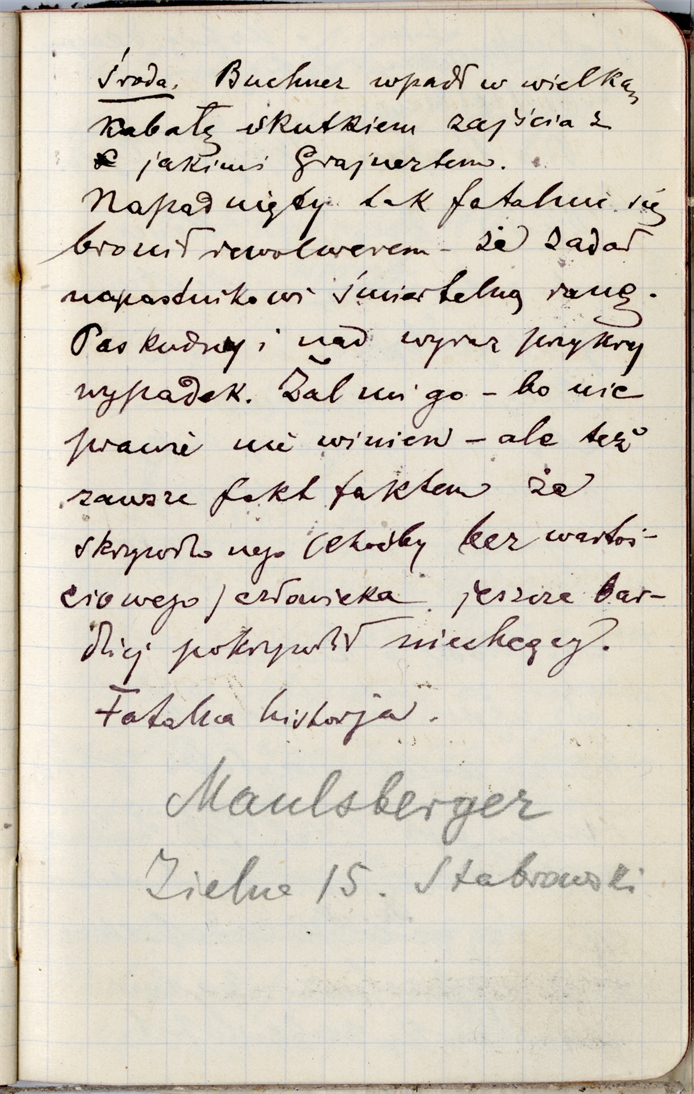 Środa. Buchner wpadł w wielką
kabałę skutkiem zajścia z
jakimś Grajnertem.
Napadnięty tak fatalnie się
bronił rewolwerem – że zadał
napastnikowi śmiertelną ranę.
Paskudny i nad wyraz przykry
wypadek. Żal mi go – bo nic
prawie nie winien – ale też
zawsze fakt faktem że
skrzywdzonego (choćby bez wartoś-
ciowego) człowieka jeszcze bar-
dziej pokrzywdził niechcący.
Fatalna historja.
Maulsberger
Zielna 15. Stabrowski